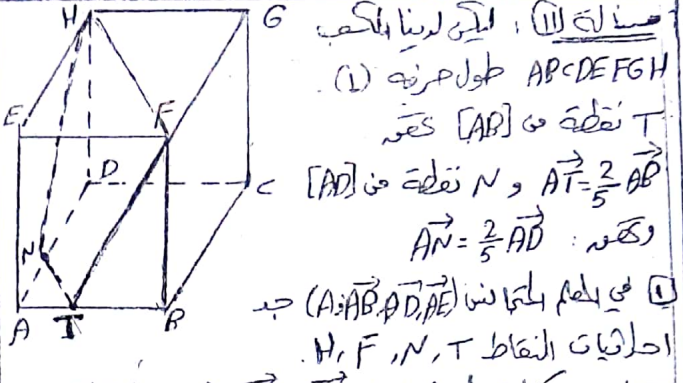 مسألة (11): ليكن لدينا المكعب
ABCDEFGH طول حرفه (1).
T نقطة من [AB] تحقق
AT = 2/5 AB و N نقطة من [AD]
وتحقق: AN = 2/5 AD
1 في المعلم المتجانس (A; AB, AD, AE) جد
احداثيات النقاط H, F, N, T.
H
G
E
F
D
C
N
A
T
B